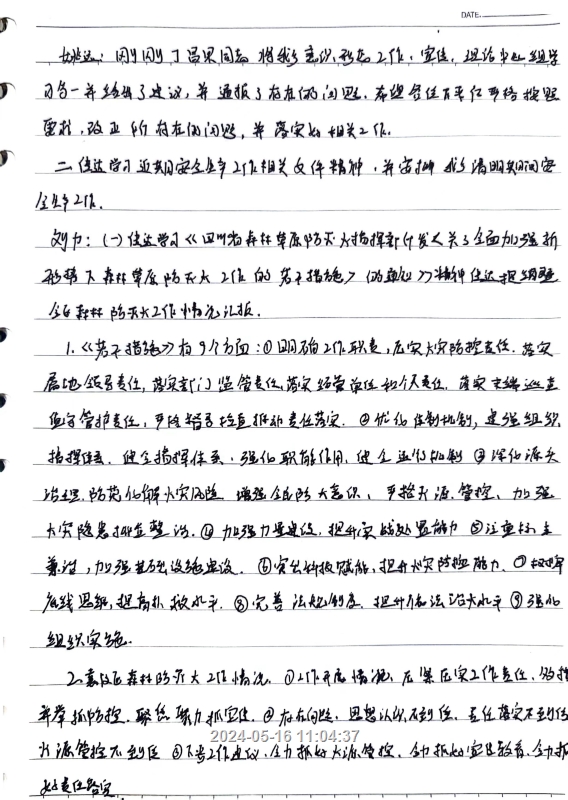 DATE.
刚刚丁昌果同志将我乡意识形态工作、宣传、理论中心组学
习等一并给出了建议,并通报了存在的问题,希望各位严格按照
要求,改正所存在的问题,并落实好相关工作。
二、传达学习近期安全生产工作相关文件精神,并安排我乡清明期间安
全生产工作。
刘力:(一)传达学习《四川省森林草原防灭火指挥部印发<关于全面加强新
形势下森林草原防灭火工作的若干措施>的通知》精神
森林防灭火工作情况汇报。
1.《若干措施》有9个方面:①明确工作职责,压实火灾防控责任。落实
属地领导责任,落实部门监管责任,落实经营单位和个人责任,落实
管护责任,严格督导检查推动责任落实。②优化体制机制,建强组织
指挥体系。健全指挥体系,强化职能作用,健全运行机制③深化源头
治理,防范化解火灾风险。增强全民防火意识,严格火源管控,加强
火灾隐患排查整治。④加强力量建设,提升实战处置能力⑤注重标本
兼治,加强基础设施建设。⑥突出科技赋能,提升火灾防控能力。⑦
底线思维,提高扑救水平。⑧完善法规制度,提升依法治火水平⑨强化
组织实施。
2.森林防灭火工作情况。①工作开展情况,压紧压实工作责任,
并举抓防控,联络聚力抓宣传。②存在问题,思想认识不到位,责任落实不到位
火源管控不到位③下步工作建议,全力抓好火源管控,全力抓好宣传教育,全力抓
好责任落实
2024-05-16 11:04:37